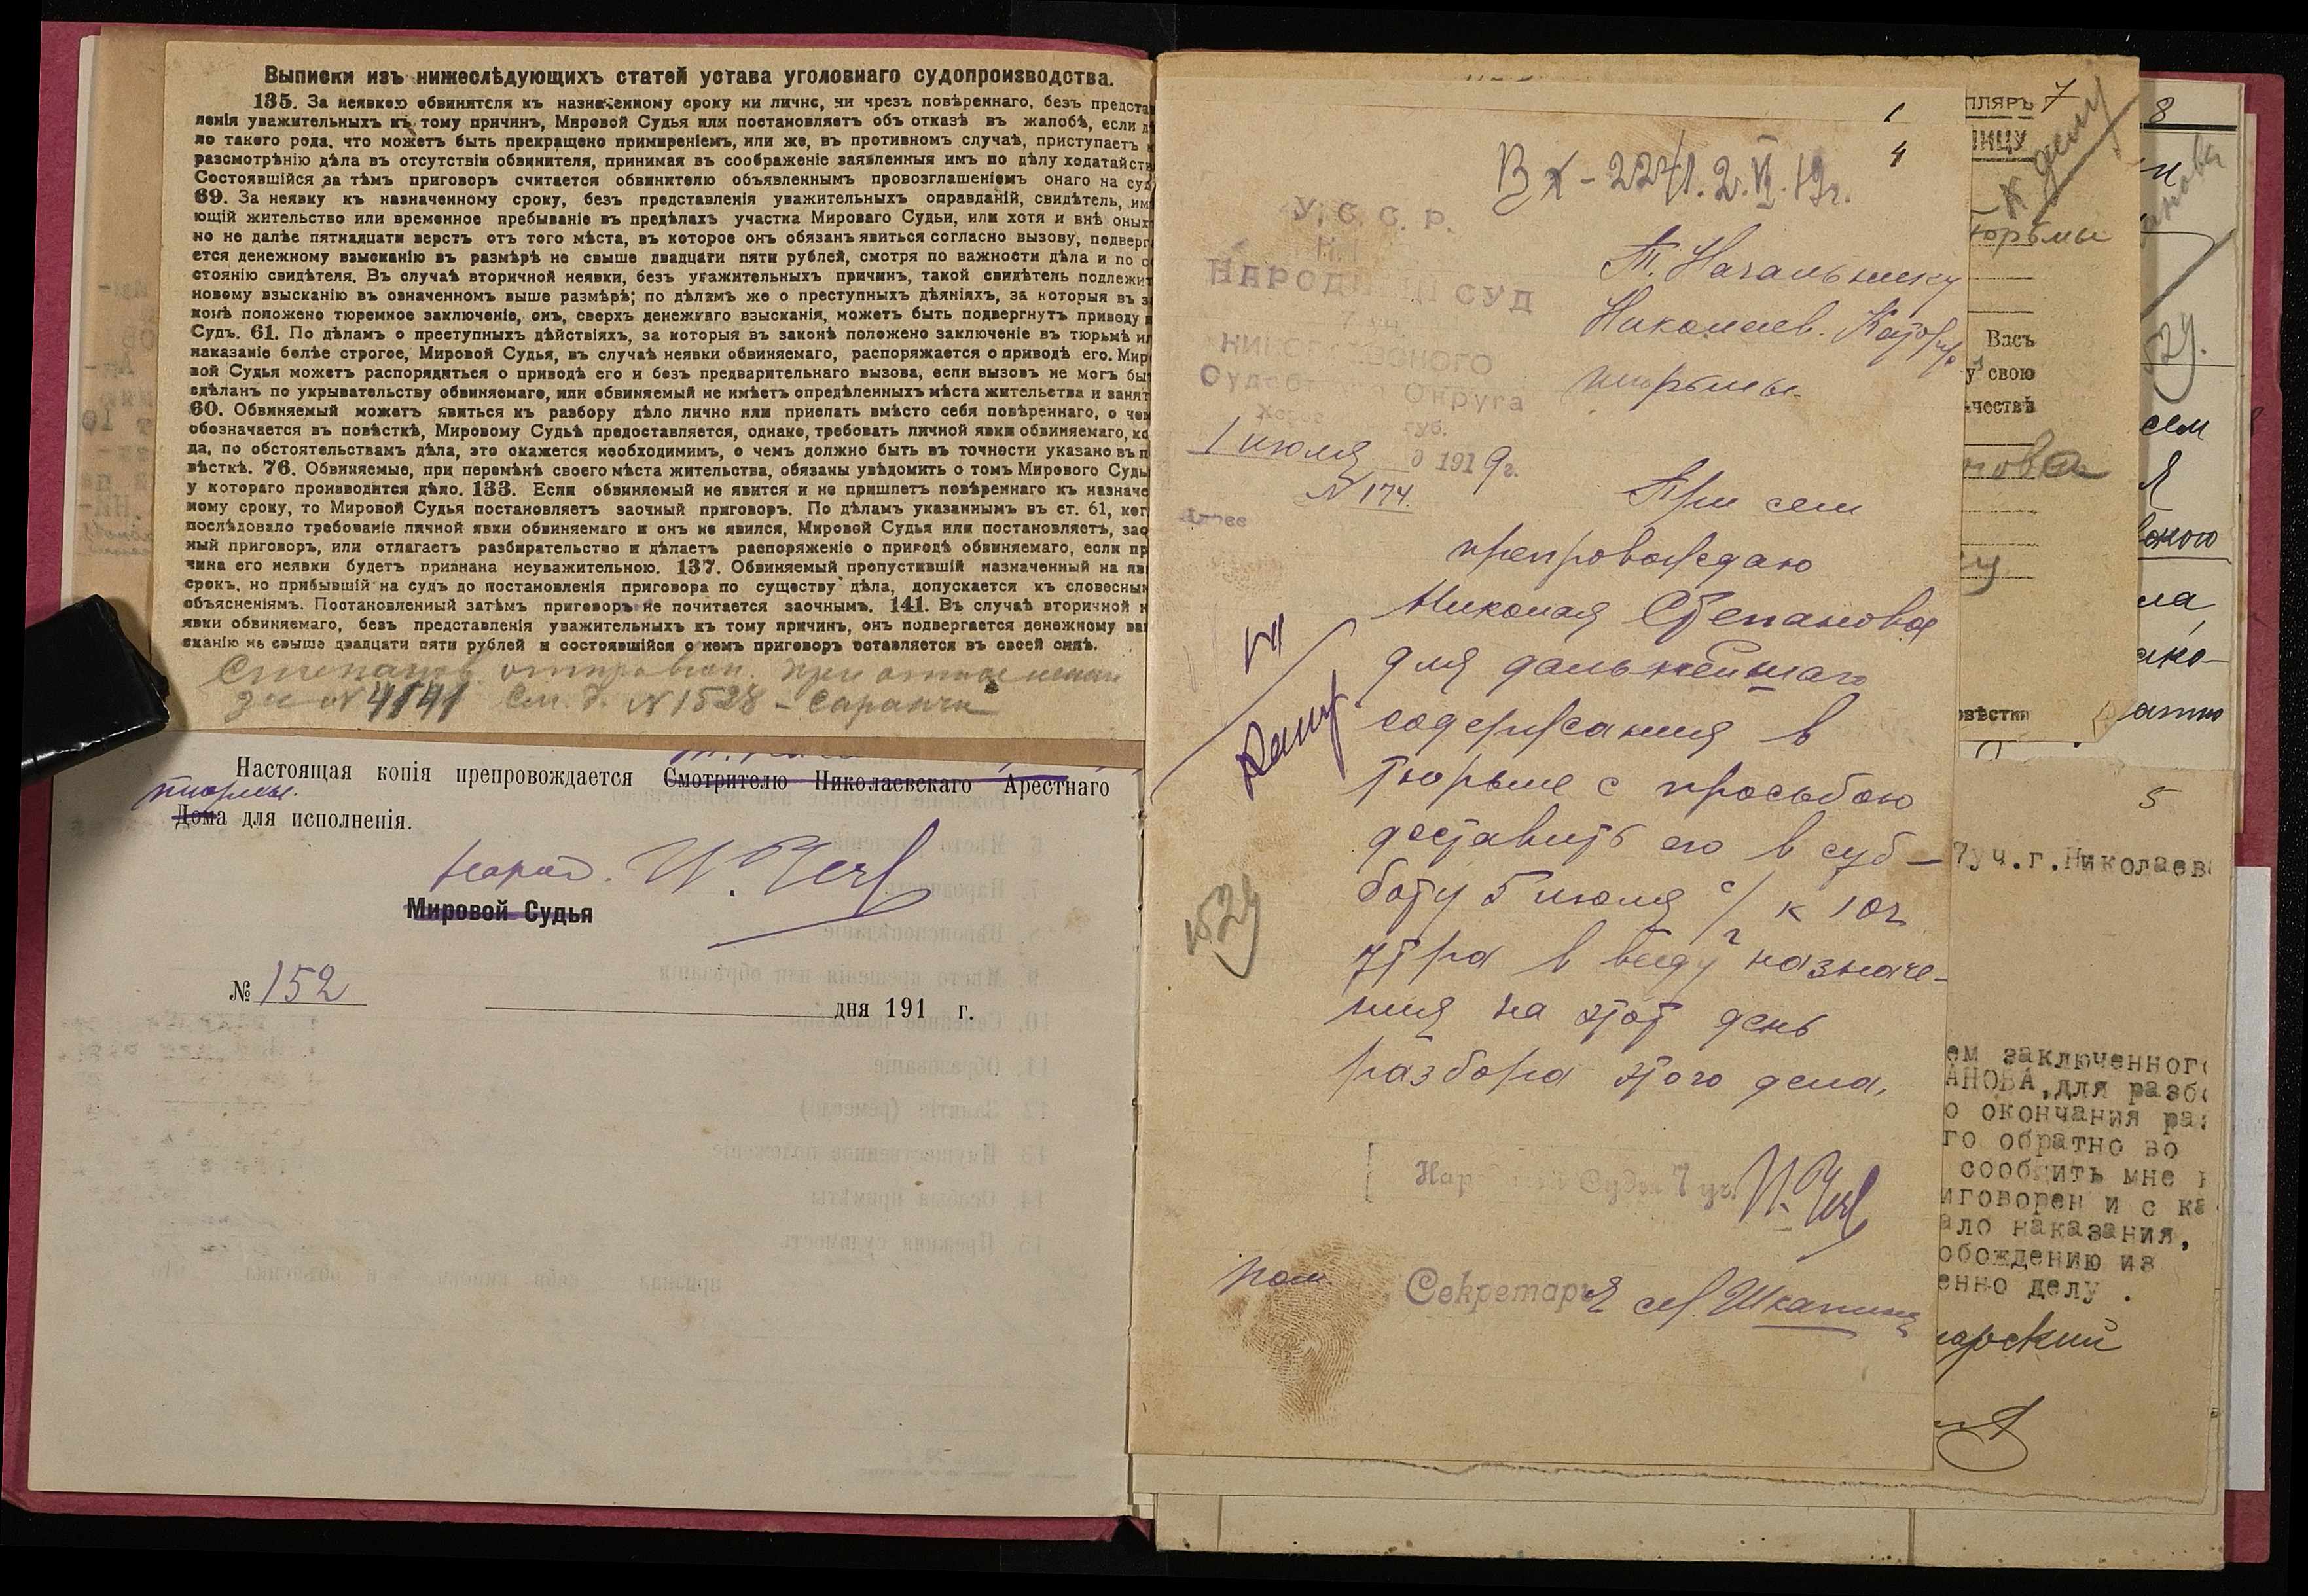 Выписки изъ нижеслѣдующихъ статей устава уголовнаго судопроизводства.
135. За неявкою обвинителя къ назначенному сроку ни лично, ни чрезъ повѣреннаго, безъ предста
ленія уважительныхъ къ тому причинъ, Мировой Судья или постановляетъ объ отказѣ въ жалобѣ, если д
ло такого рода, что можетъ быть прекращено примиреніемъ, или же, въ противномъ случаѣ, приступаетъ
разсмотрѣнію дѣла въ отсутствіи обвинителя, принимая въ соображеніе заявленныя имъ по дѣлу ходатайст
Состоявшійся за тѣмъ приговоръ считается обвинителю объявленнымъ провозглашеніемъ онаго на су
69. За неявку къ назначенному сроку, безъ представленія уважительныхъ оправданій, свидѣтель, им
ющій жительство или временное пребываніе въ предѣлахъ участка Мирового Судьи, или хотя и внѣ оныхъ
но не далѣе пятнадцати верстъ отъ того мѣста, въ которое онъ обязанъ явиться согласно вызову, подверг
ется денежному взысканію въ размѣрѣ не свыше двадцати пяти рублей, смотря по важности дѣла и по с
стоянію свидѣтеля. Въ случаѣ вторичной неявки, безъ уважительныхъ причинъ, такой свидѣтель подлежит
новому взысканію въ означенномъ выше размѣрѣ; по дѣламъ же о преступныхъ дѣяніяхъ, за которыя въ з
конѣ положено тюремное заключеніе, онъ, сверхъ денежнаго взысканія, можетъ быть подвергнутъ приводу
Судъ. 61. По дѣламъ о преступныхъ дѣйствіяхъ, за которыя въ законѣ положено заключеніе въ тюрьмѣ ил
наказаніе болѣе строгое, Мировой Судья, въ случаѣ неявки обвиняемаго, распоряжается о приводѣ его. Мир
вой Судья можетъ распорядиться о приводѣ его и безъ предварительнаго вызова, если вызовъ не могъ бы
сдѣланъ по укрывательству обвиняемаго, или обвиняемый не имѣетъ опредѣленныхъ мѣста жительства и занят
60. Обвиняемый можетъ явиться къ разбору дѣло лично или прислать вмѣсто себя повѣреннаго, о чем
обозначается въ повѣсткѣ, Мировому Судьѣ предоставляется, однако, требовать личной явки обвиняемаго, ко
да, по обстоятельствамъ дѣла, это окажется необходимимъ, о чемъ должно быть въ точности указано въ п
вѣсткѣ. 76. Обвиняемые, при перемѣнѣ своего мѣста жительства, обязаны увѣдомить о томъ Мирового Судь
у котораго производится дѣло. 133. Если обвиняемый не явится и не пришлетъ повѣреннаго къ назначе
ному сроку, то Мировой Судья постановляетъ заочный приговоръ. По дѣламъ указаннымъ въ ст. 61, ког
послѣдовало требованіе личной явки обвиняемаго и онъ не явился, Мировой Судья или постановляетъ, зао
ный приговоръ, или отлагаетъ разбирательство и дѣлаетъ распоряженіе о приводѣ обвиняемаго, если пр
чина его неявки будетъ признана неуважительною. 137. Обвиняемый пропустившій назначенный на яв
срокъ, но прибывшій на судъ до постановленія приговора по существу дѣла, допускается къ словесным
объясненіямъ. Постановленный затѣмъ приговоръ не почитается заочнымъ. 141. Въ случаѣ вторичной н
явки обвиняемаго, безъ представленія уважительныхъ къ тому причинъ, онъ подвергается денежному вз
сканію не свыше двадцати пяти рублей и состоявшійся о немъ приговоръ оставляется въ своей силѣ.
Степанов отправлен. при отношении
за № 4141 См. д. № 1528 -
Настоящая копія препровождается Смотрителю Николаевскаго Арестнаго
тюрьмы.
Дома для исполненія.
народ.
Мировой Судья
№ 152 дня 191 г.
1
4
Вх - 2241. 2.VII.19г.
У. С. С. Р.
НАРОДНЫЙ СУД
7 уч.
НИКОЛАЕВСКОГО
Судебного Округа
Херс губ.
1 июля д 1919г.
№ 174.
Адрес
Т. Начальнику
Николаев. Каторж
тюрьмы.
При сем
препровождаю
Николая Степанова
для дальнейшаго
содержания в
тюрьме с просьбою
доставить его в суб-
боту 5 июля с/г к 10ч
утра в виду назначе-
ния на этот день
разбора этого дела.
К делу
1529
Народный Судья 7 уч.
пом. Секретаря
пляръ 7
ницу
К делу
юрьмы
Васъ
у свою
чествѣ
нова
вѣстки
8
сем
Я
ла,
ако-
5
7уч.г.Николаев
ем заключенног
АНОВА,для разб
о окончания ра
го обратно во
сообщить мне
иговорен и с ка
ало наказания,
обождению из
енно делу .